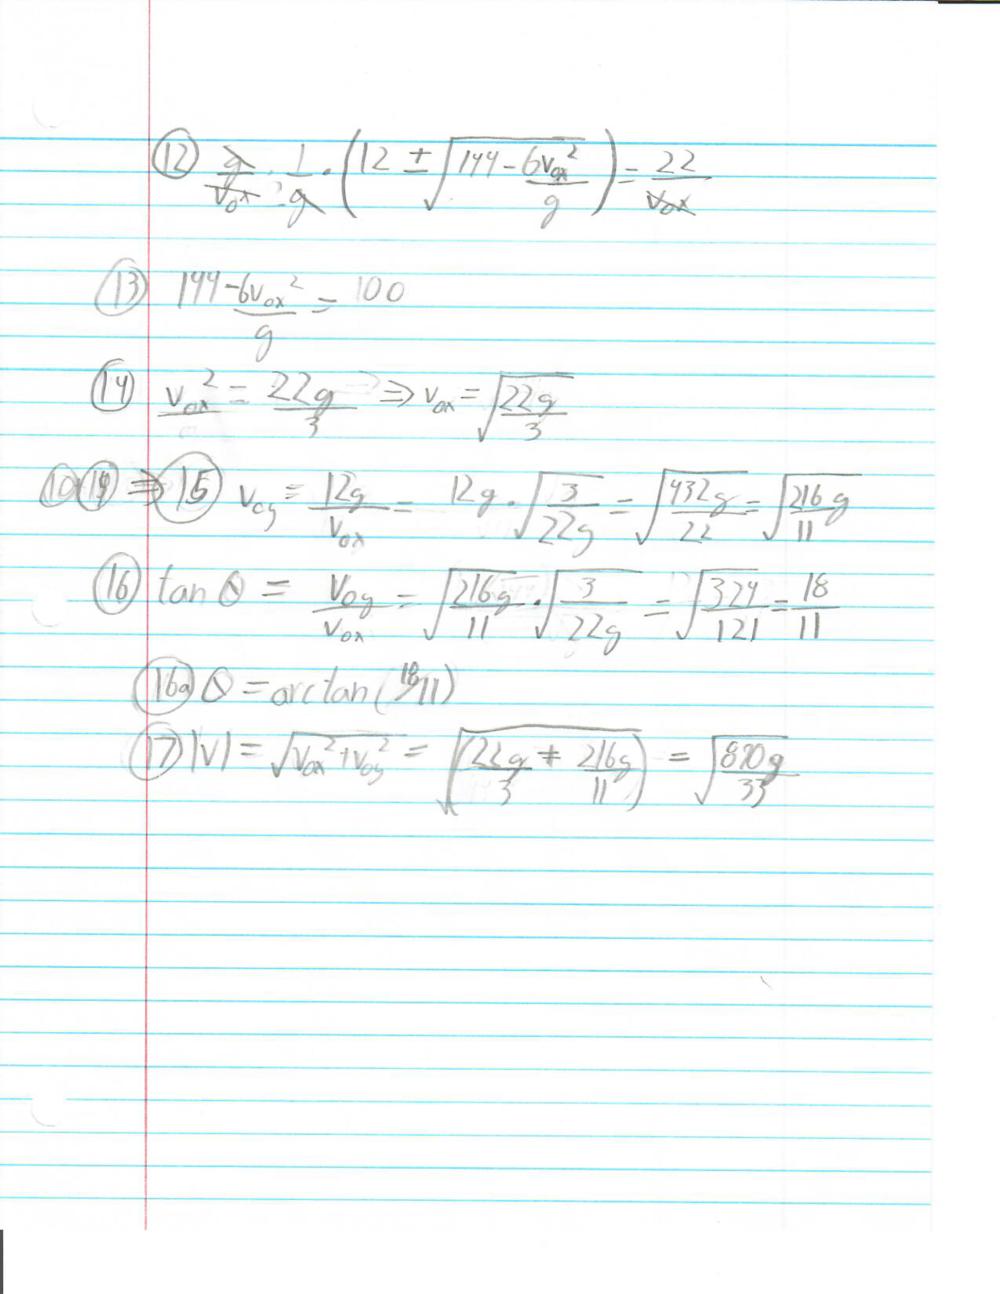 ⑫ g/v₀ₓ · 1/g · (12 ± √(144 - 6v₀ₓ²/g)) = 22/v₀ₓ
⑬ 144 - 6v₀ₓ²/g = 100
⑭ v₀ₓ² = 22g/3 ⇒ v₀ₓ = √(22g/3)
⑩ ⑭ ⇒ ⑮ v₀y = 12g/v₀ₓ = 12g · √(3/22g) = √(432g/22) = √(216g/11)
⑯ tan θ = v₀y/v₀ₓ = √(216g/11) · √(3/22g) = √(324/121) = 18/11
(16a) θ = arctan(18/11)
⑰ |v| = √(v₀ₓ² + v₀y²) = √(22g/3 + 216g/11) = √(890g/33)